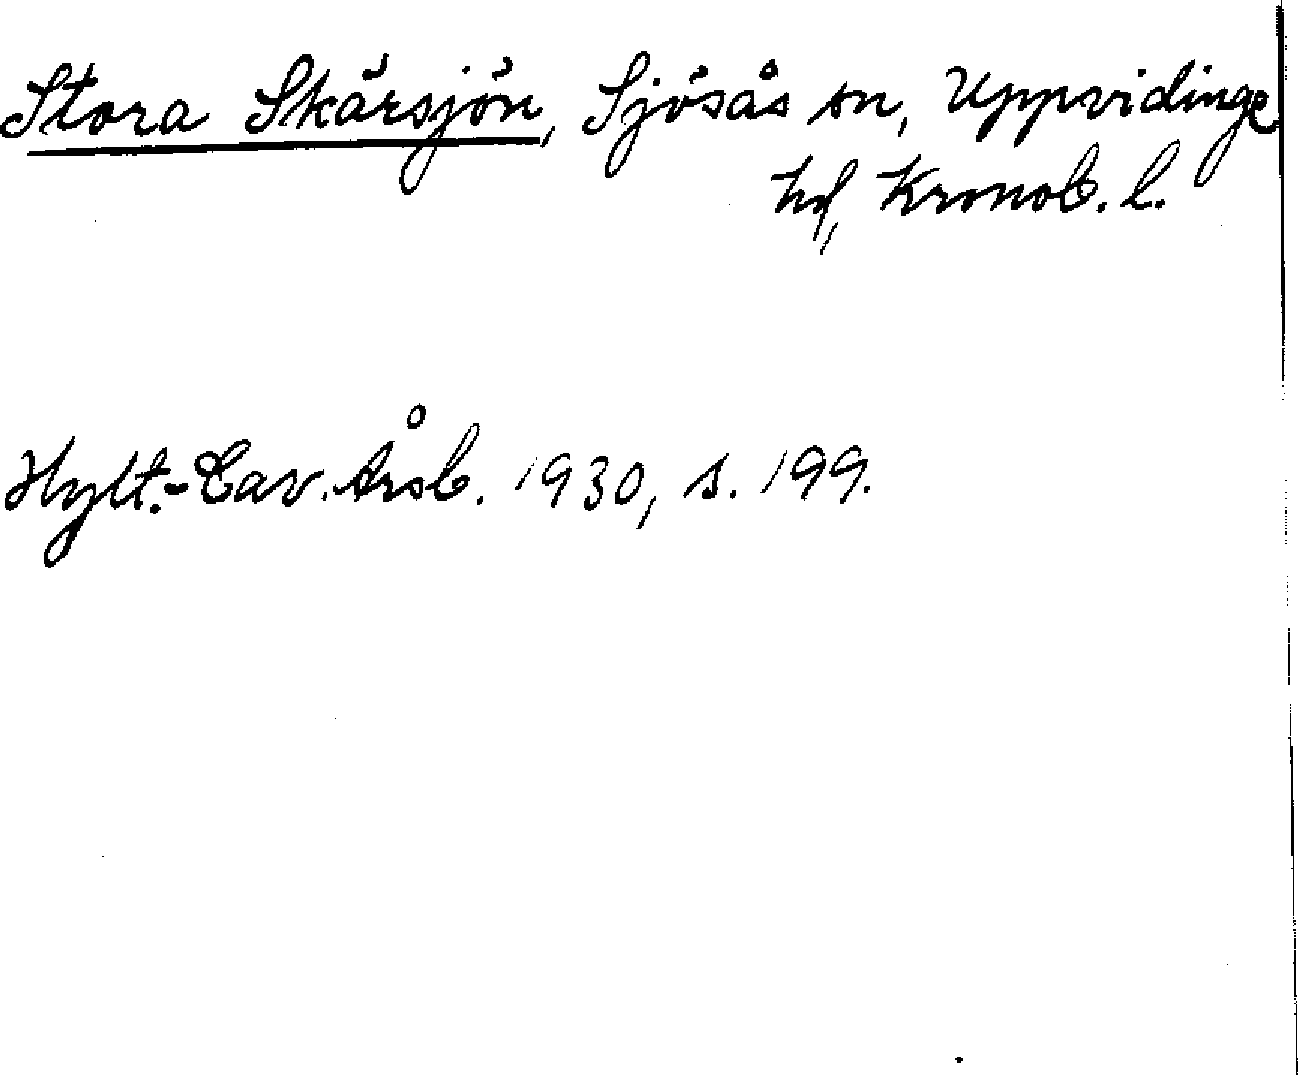 Stora Skärsjön, Sjösås sn, Uppvidinge
hd, Kronob. l.
Hylt.-Cav. Årsb. 1930, s. 199.